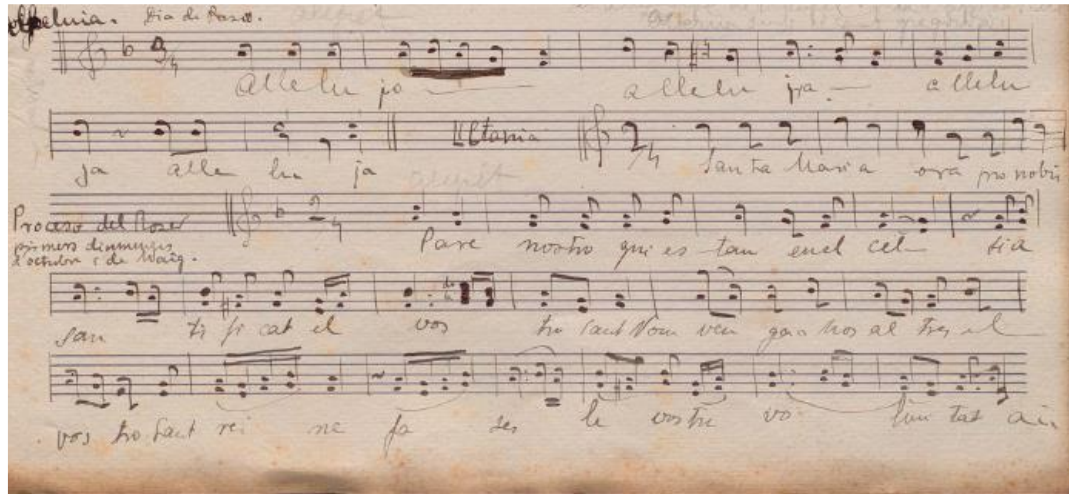 Alleluia. Dia de Pascua.
3/4
Allelu ja allelu ja allelu
ja alle lu ja LLetania 2/4 Santa Maria ora pro nobis
Proceso del Roser
primers diumenges
d'octubre i de Maig.
2/4
Pare nostro qui es tau en el cel sia
san ti fi cat el vos tro sant Nom ven ga a nos al tres el
vos tro sant rei ne fa ses le vostre vo lun tat ai